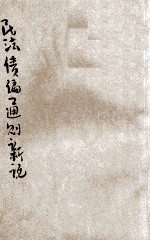 民法债编通则新说